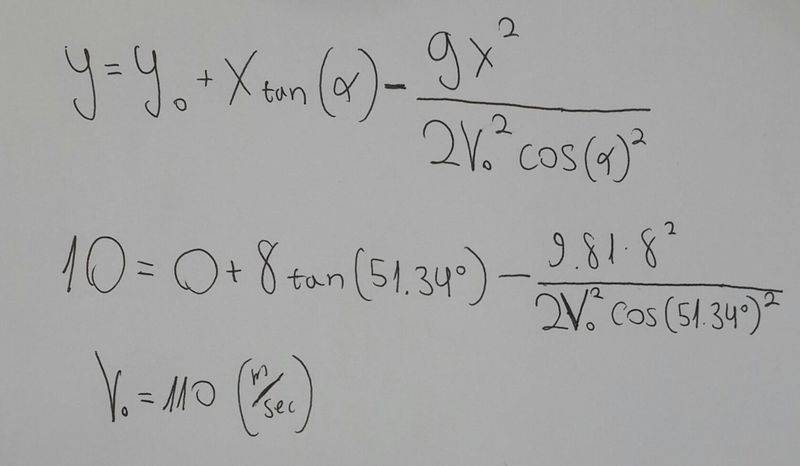 y = y₀ + x tan(α) - gx² / 2V₀² cos(α)²
10 = 0 + 8 tan(51.34°) - 9.81·8² / 2V₀² cos(51.34°)²
V₀ = 110 (m/sec)